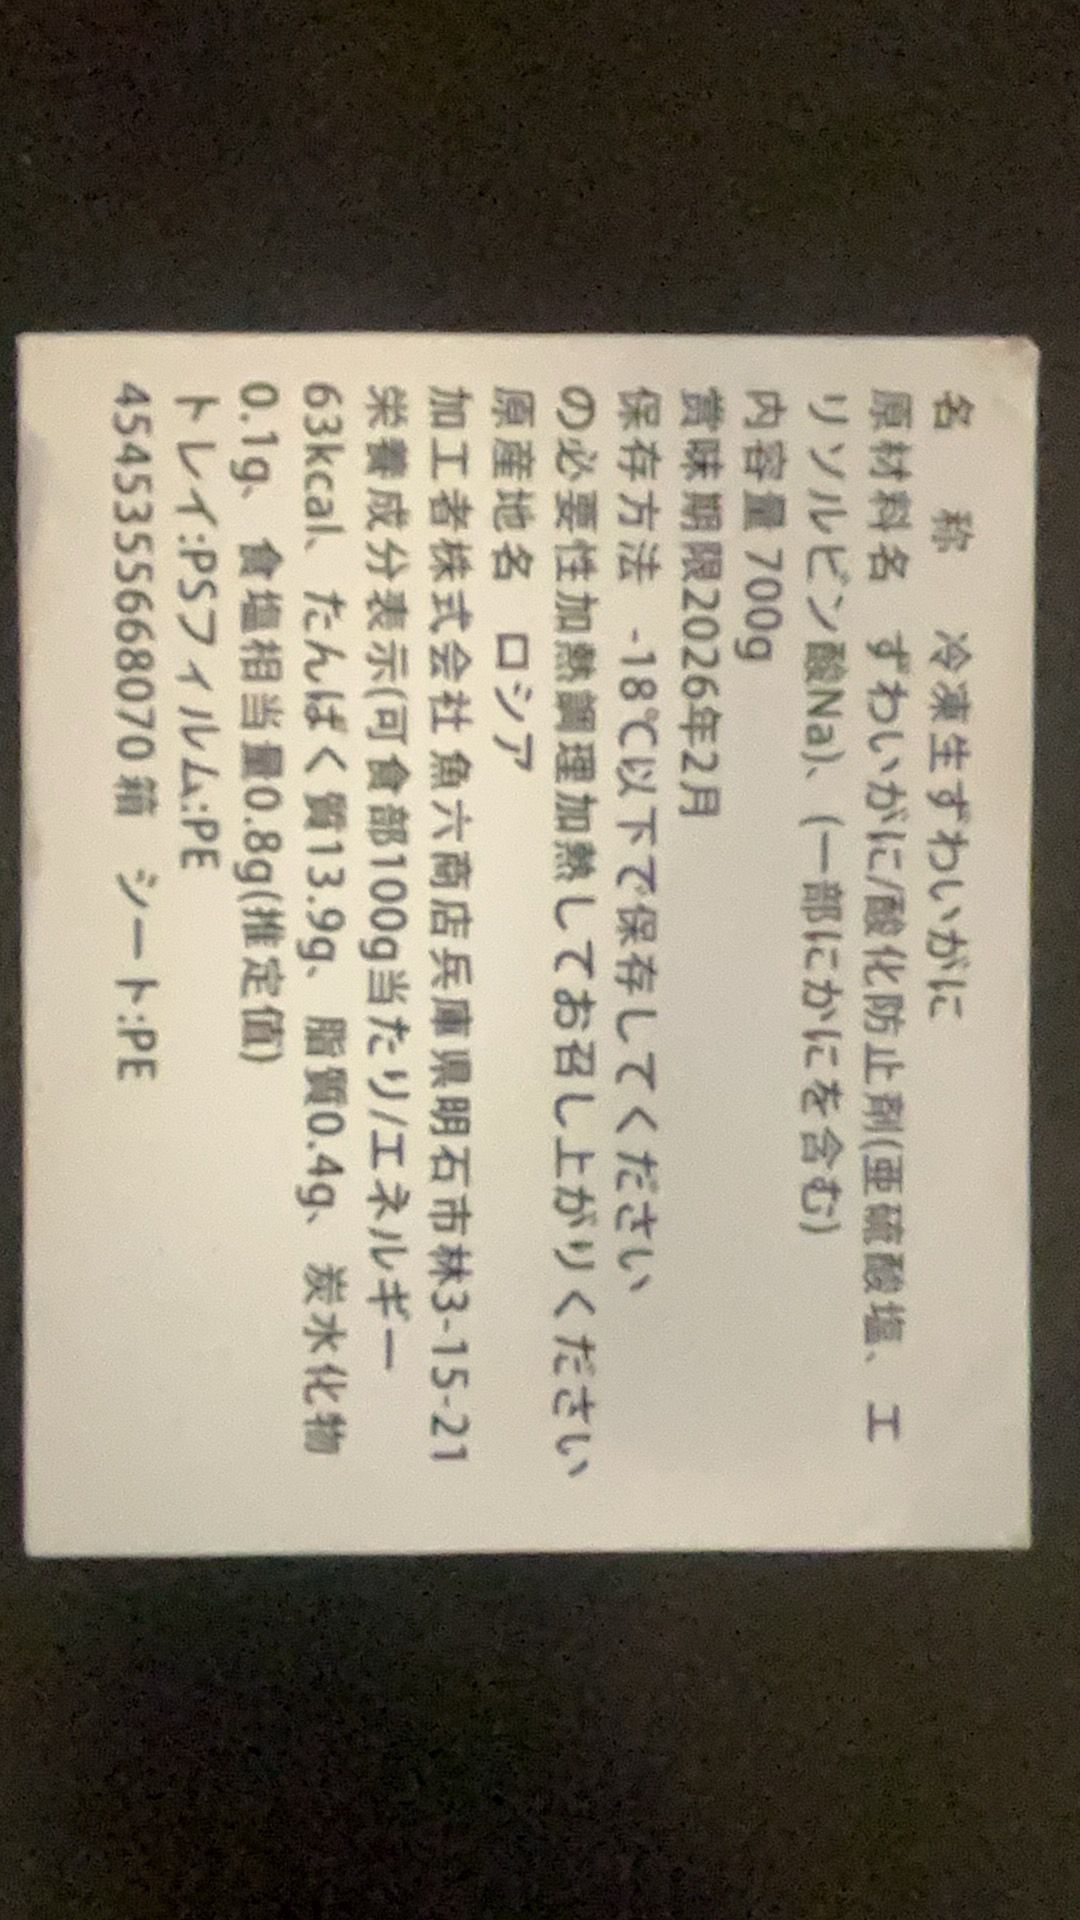 名　称　冷凍生ずわいがに
原材料名　ずわいがに/酸化防止剤(亜硫酸塩、エ
リソルビン酸Na)、(一部にかにを含む)
内容量 700g
賞味期限2026年2月
保存方法　-18℃以下で保存してください
の必要性加熱調理加熱してお召し上がりください
原産地名　ロシア
加工者株式会社 魚六商店兵庫県明石市林3-15-21
栄養成分表示(可食部100g当たり/エネルギー
63kcal、たんぱく質13.9g、脂質0.4g、炭水化物
0.1g、食塩相当量0.8g(推定値)
トレイ:PSフィルム:PE
4545355668070 箱　シート:PE